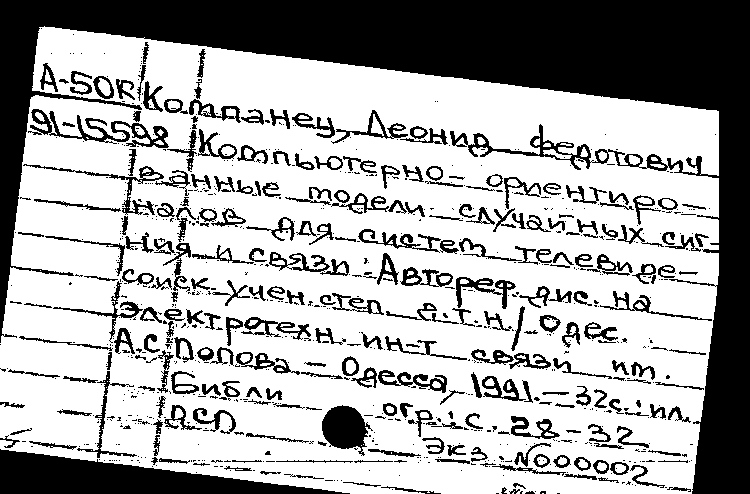 А-50К Компанец, Леонид Федотович
91-15598 Компьютерно-ориентиро-
ванные модели случайных сиг-
налов для систем телевиде-
ния и связи: Автореф. дис. на
соиск. учен. степ. д.т.н. / Одес.
электротехн. ин-т связи им.
А.С. Попова. – Одесса, 1991. – 32с.: ил.
Библиогр.: с. 28-32
ДСП Экз. N000002